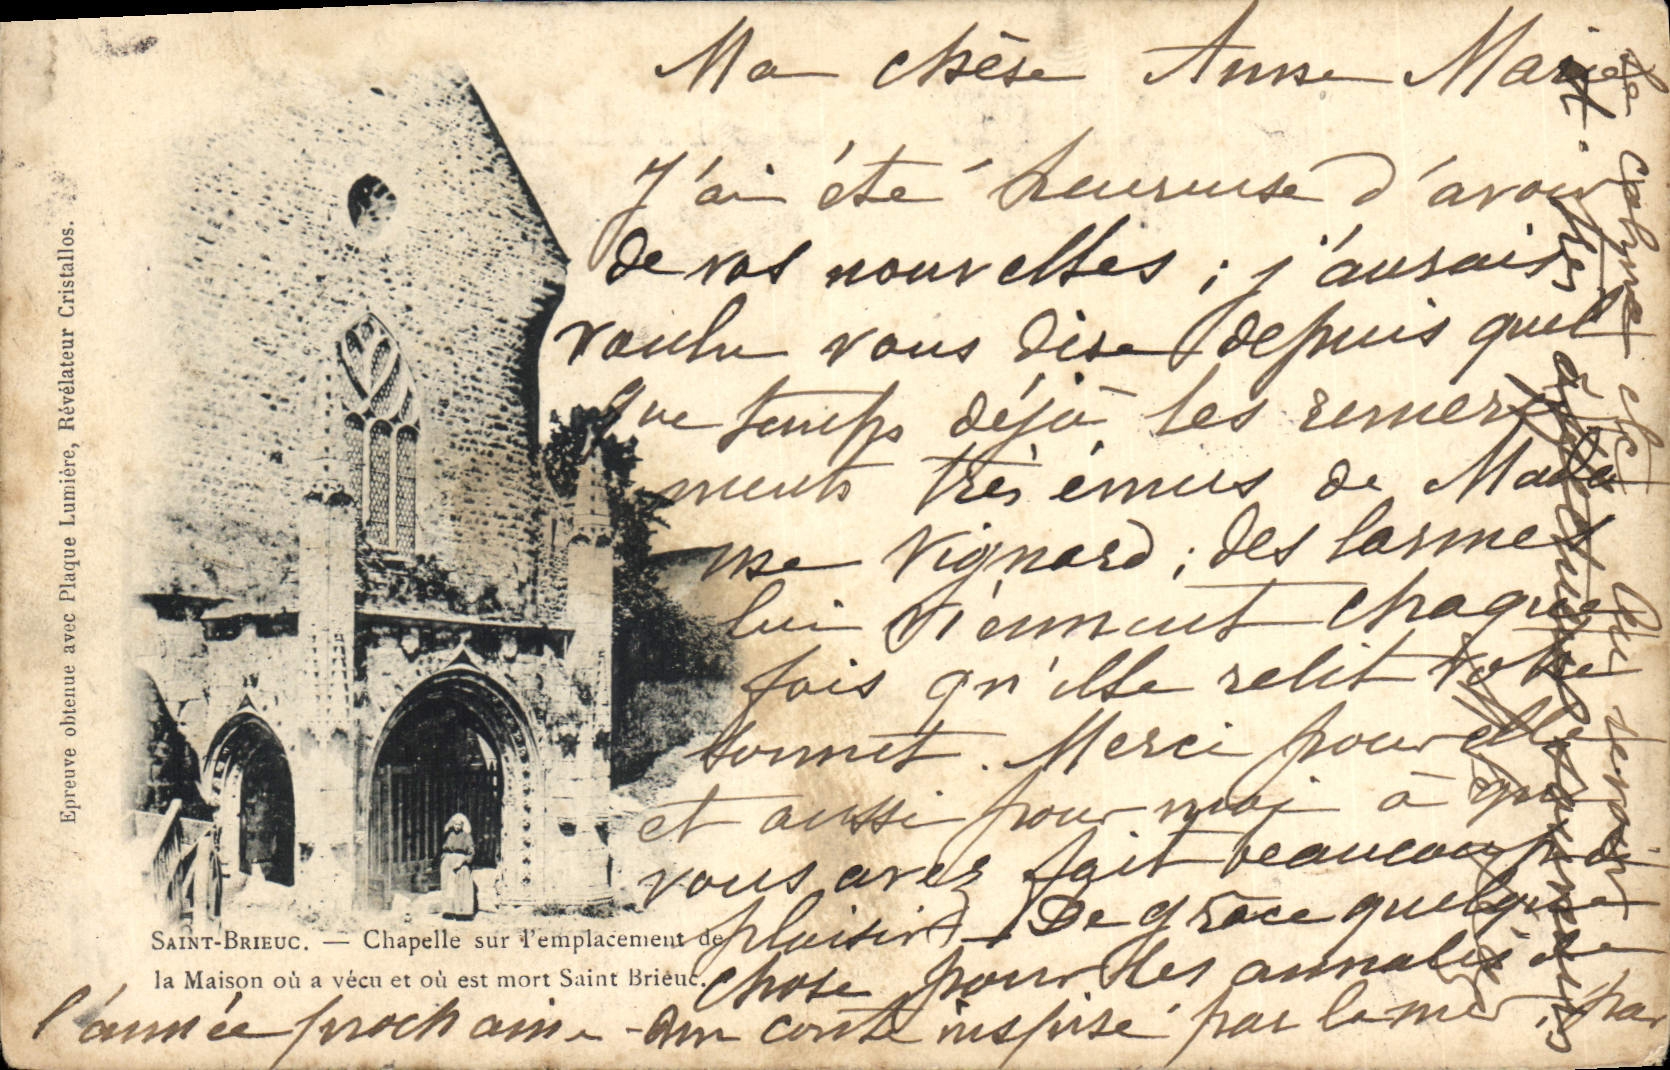 Ma chère Anne Marie
J'ai été heureuse d'avoir
de vos nouvelles ; j'aurais
voulu vous dire depuis quel
que temps déjà les remercie
ments très émus de Mada
me Vignard ; des larmes
lui viennent chaque
fois qu'elle relit votre
sonnet. Merci pour elle
et aussi pour moi à qui
vous avez fait beaucoup de
plaisir. De grâce quelque
chose pour les annales de
l'année prochaine - un conte inspiré par la mer, par
le calme etc Au revoir
SAINT-BRIEUC. — Chapelle sur l'emplacement de
la Maison où a vécu et où est mort Saint Brieuc.
Epreuve obtenue avec Plaque Lumière, Révélateur Cristallos.